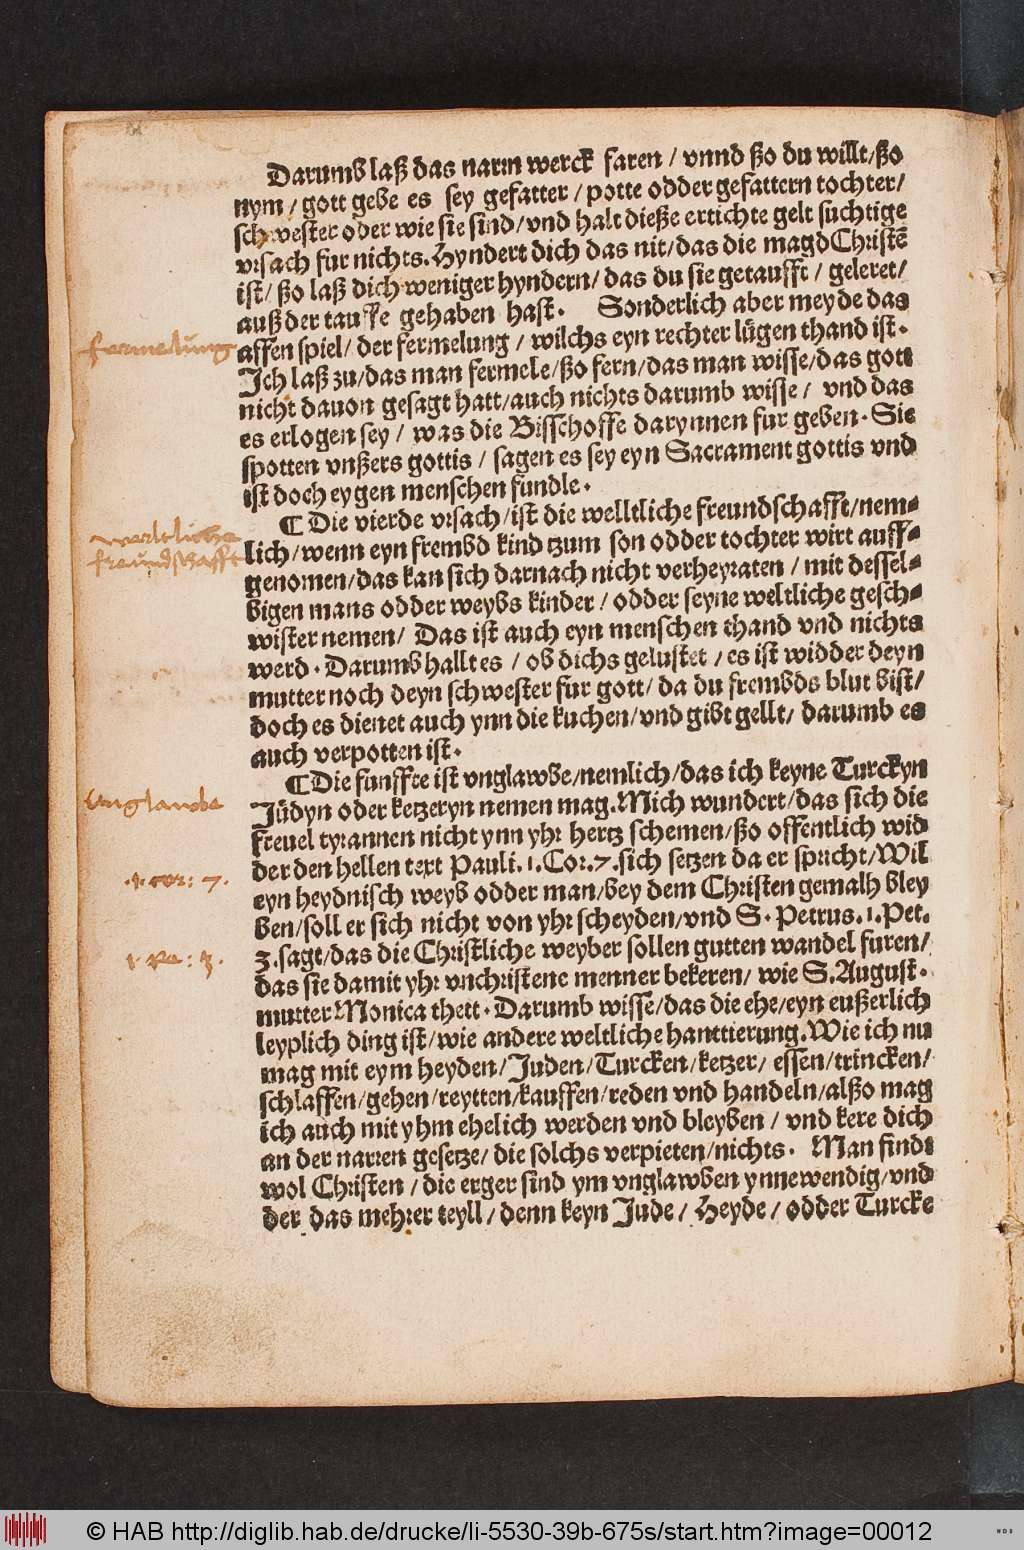 Darumb laß das narrn werck faren / vnnd ßo du willt / ßo
nym / gott gebe es sey gefatter / potte odder gefattern tochter /
schwester oder wie sie sind / vnd halt dieße ertichte gelt suchtige
vrsach fur nichts. Hyndert dich das nit / das die magd Christē
ist / ßo laß dich weniger hyndern / das du sie getaufft / geleret /
auß der tauffe gehaben hast. Sonderlich aber meyde das
fermelung
affen spiel / der fermelung / wilchs eyn rechter lügen thand ist.
Ich laß zu / das man fermele / ßo fern / das man wisse / das gott
nicht dauon gesagt hatt / auch nichts darumb wisse / vnd das
es erlogen sey / was die Bisschoffe darynnen fur geben. Sie
spotten vnßers gottis / sagen es sey eyn Sacrament gottis vnd
ist doch eygen menschen fundle.
¶ Die vierde vrsach / ist die welltliche freundschafft / nem⸗
weltliche
freundschafft
lich / wenn eyn frembd kind tzum son odder tochter wirt auff⸗
genomen / das kan sich darnach nicht verheyraten / mit dessel⸗
bigen mans odder weybs kinder / odder seyne weltliche gesch⸗
wister nemen / Das ist auch eyn menschen thand vnd nichts
werd. Darumb hallt es / ob dichs gelustet / es ist widder deyn
mutter noch deyn schwester fur gott / da du frembds blut bist /
doch es dienet auch ynn die kuchen / vnd gibt gellt / darumb es
auch verpotten ist.
¶ Die funffte ist vnglawbe / nemlich / das ich keyne Turckyn
Unglaube
Jüdyn oder ketzeryn nemen mag. Mich wundert / das sich die
freuel tyrannen nicht ynn yhr hertz schemen / ßo offentlich wid
der den hellen text Pauli. 1. Cor. 7. sich setzen da er spricht / Wil
.1. cor: 7.
eyn heydnisch weyb odder man / bey dem Christen gemalh bley
ben / soll er sich nicht von yhr scheyden / vnd S. Petrus. 1. Pet.
1 Pe: 3.
3. sagt / das die Christliche weyber sollen gutten wandel furen /
das sie damit yhr vnchristene menner bekeren / wie S. August.
mutter Monica thett. Darumb wisse / das die ehe / eyn eußerlich
leyplich ding ist / wie andere weltliche hanttierung. Wie ich nu
mag mit eym heyden / Juden / Turcken / ketzer / essen / trincken /
schlaffen / gehen / reytten / kauffen / reden vnd handeln / alßo mag
ich auch mit yhm ehelich werden vnd bleyben / vnd kere dich
an der narren gesetze / die solchs verpieten / nichts. Man findt
wol Christen / die erger sind ym vnglawben ynnewendig / vnd
der das mehrer teyll / denn keyn Jude / Heyde / odder Turcke
© HAB http://diglib.hab.de/drucke/li-5530-39b-675s/start.htm?image=00012